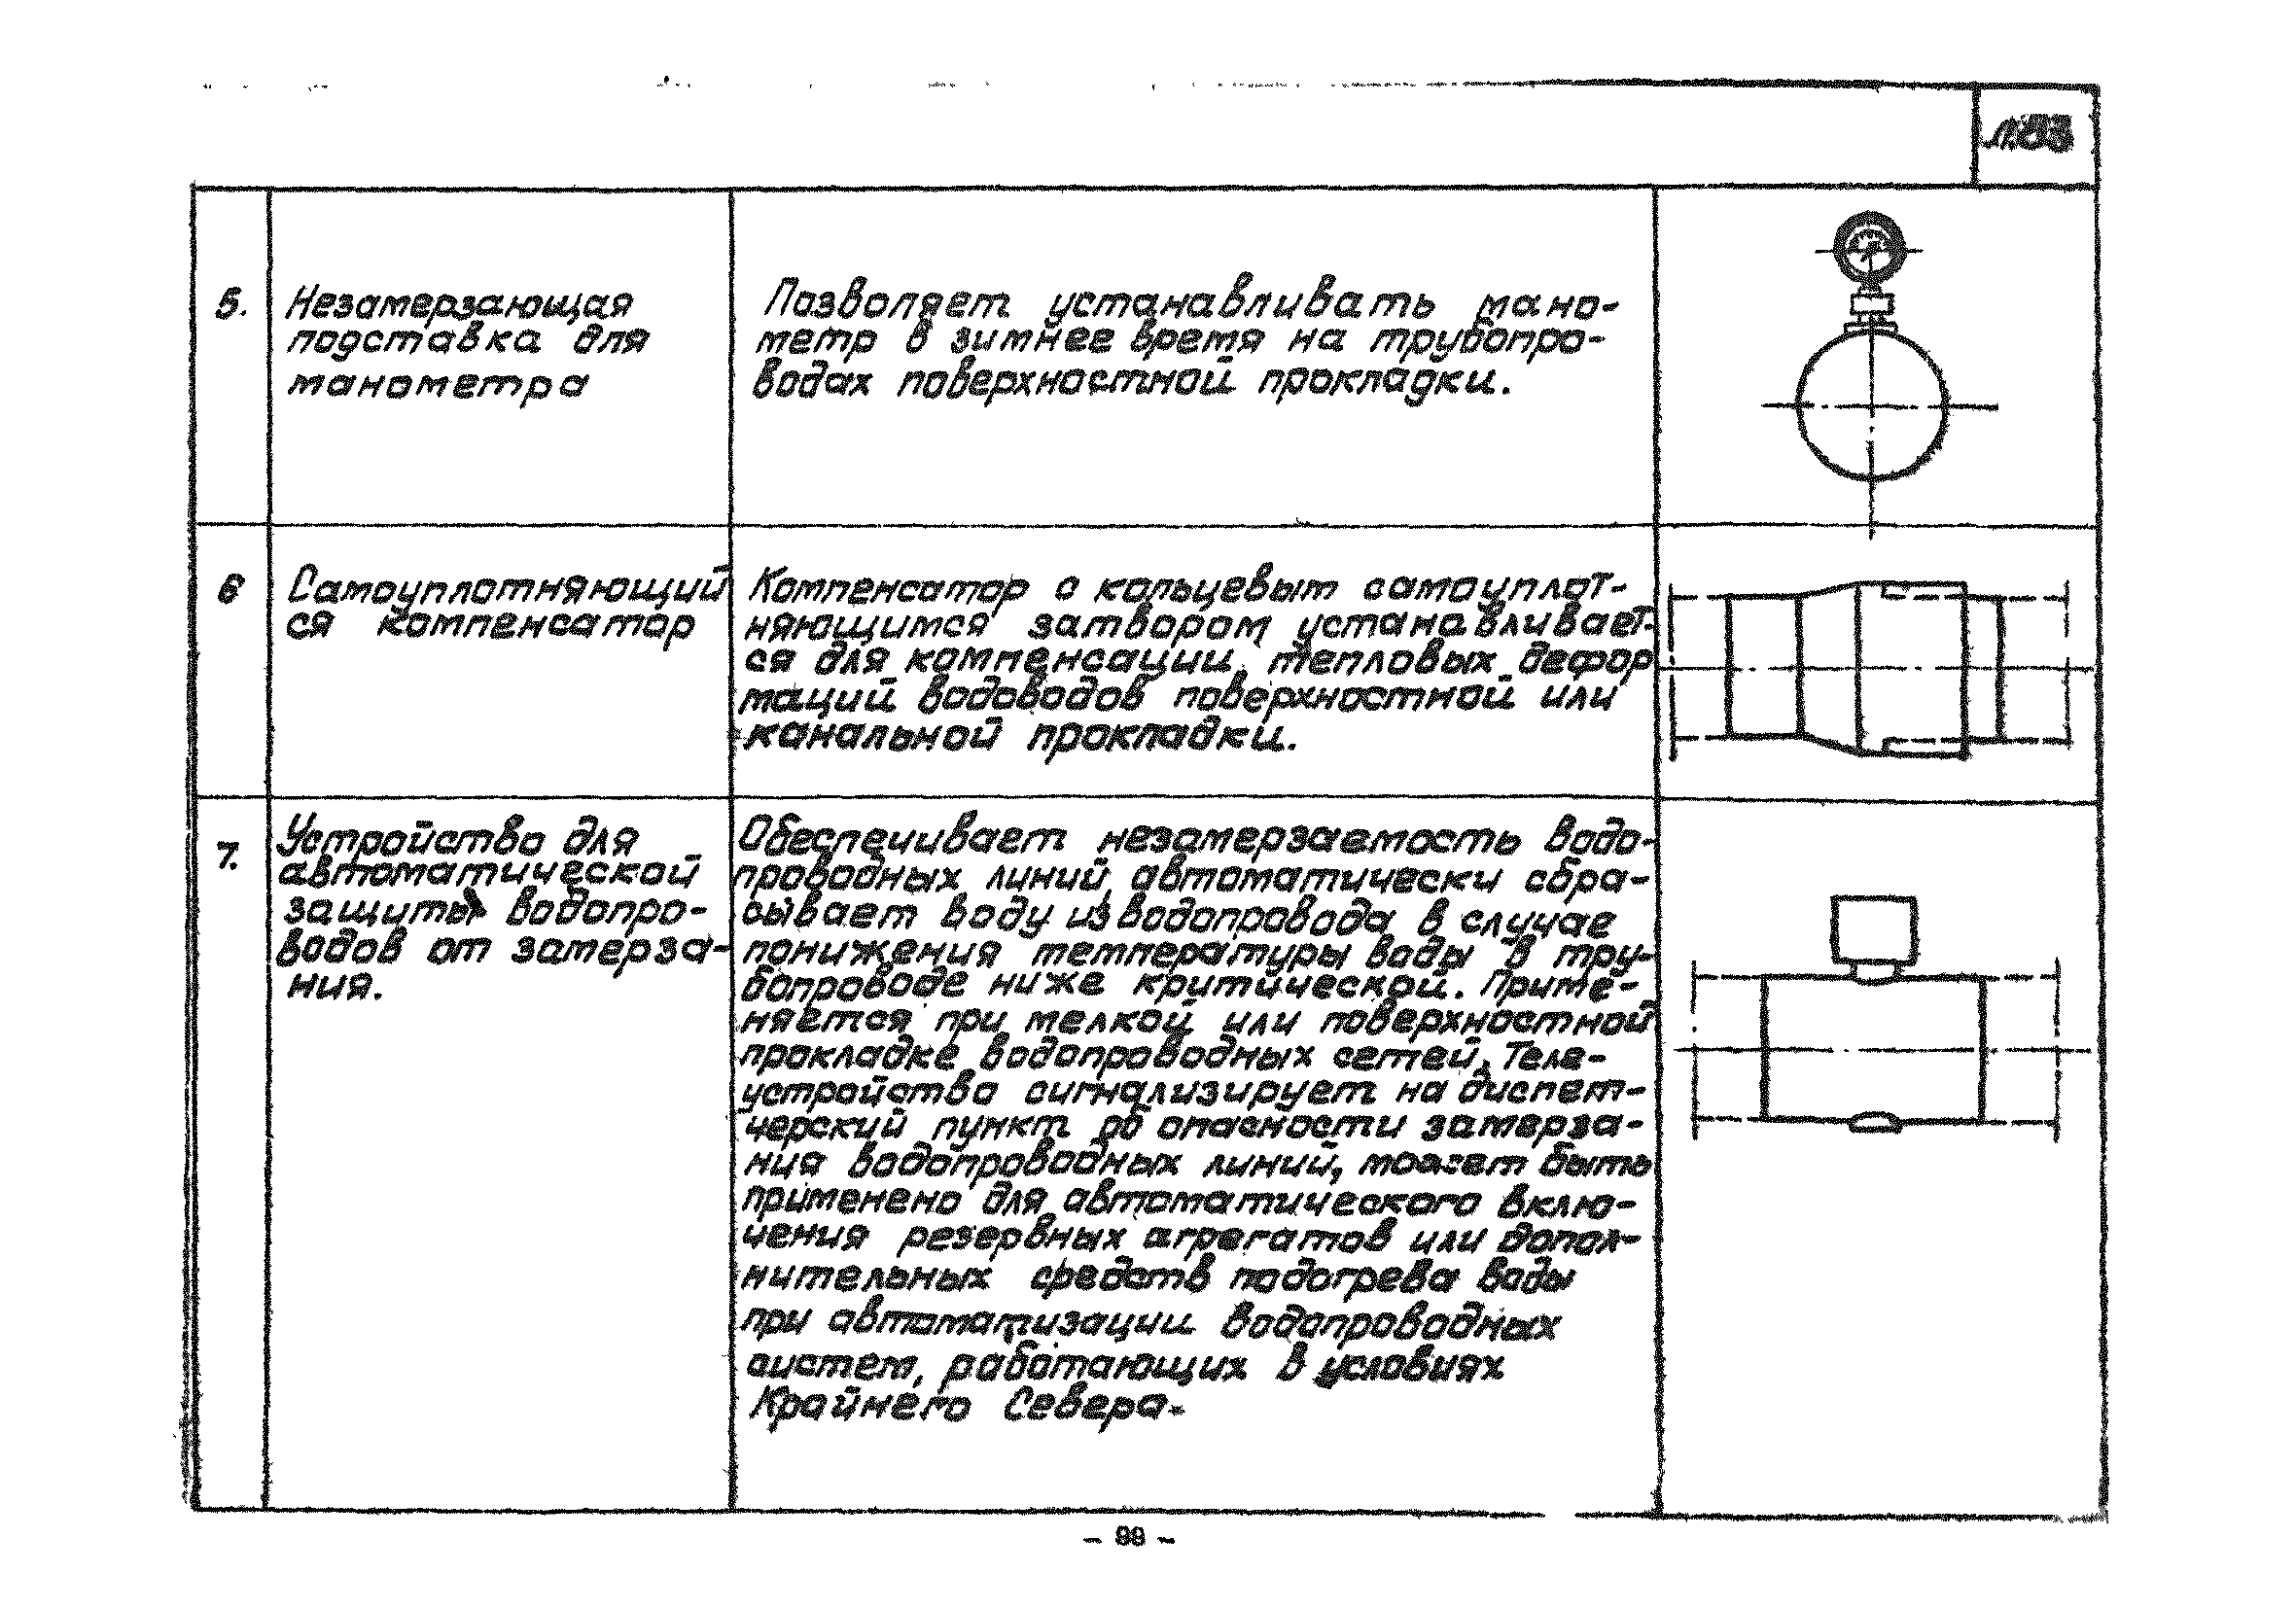 5.
Незамерзающая
подставка для
манометра
Позволяет устанавливать мано-
метр в зимнее время на трубопро-
водах поверхностной прокладки.
6
Самоуплотняющий
ся компенсатор
Компенсатор с кольцевым самоуплот-
няющимся затвором устанавливает-
ся для компенсации тепловых дефор
маций водоводов поверхностной или
канальной прокладки.
7.
Устройство для
автоматической
защиты водопро-
водов от замерза-
ния.
Обеспечивает незамерзаемость водо-
проводных линий, автоматически сбра-
сывает воду из водопровода в случае
понижения температуры воды в тру-
бопроводе ниже критической. Приме-
няется при мелкой или поверхностной
прокладке водопроводных сетей. Теле-
устройство сигнализирует на диспет-
черский пункт об опасности замерза-
ния водопроводных линий, может быть
применено для автоматического вклю-
чения резервных агрегатов или допол-
нительных средств подогрева воды
при автоматизации водопроводных
систем, работающих в условиях
Крайнего Севера.